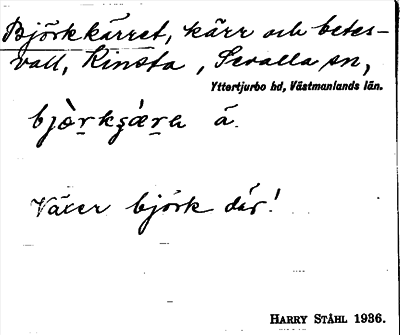 Björkkärret, kärr och betes-
vall, Kinsta, Sevalla sn,
Yttertjurbo hd, Västmanlands län.
å.
Växer björk där!
HARRY STÅHL 1936.